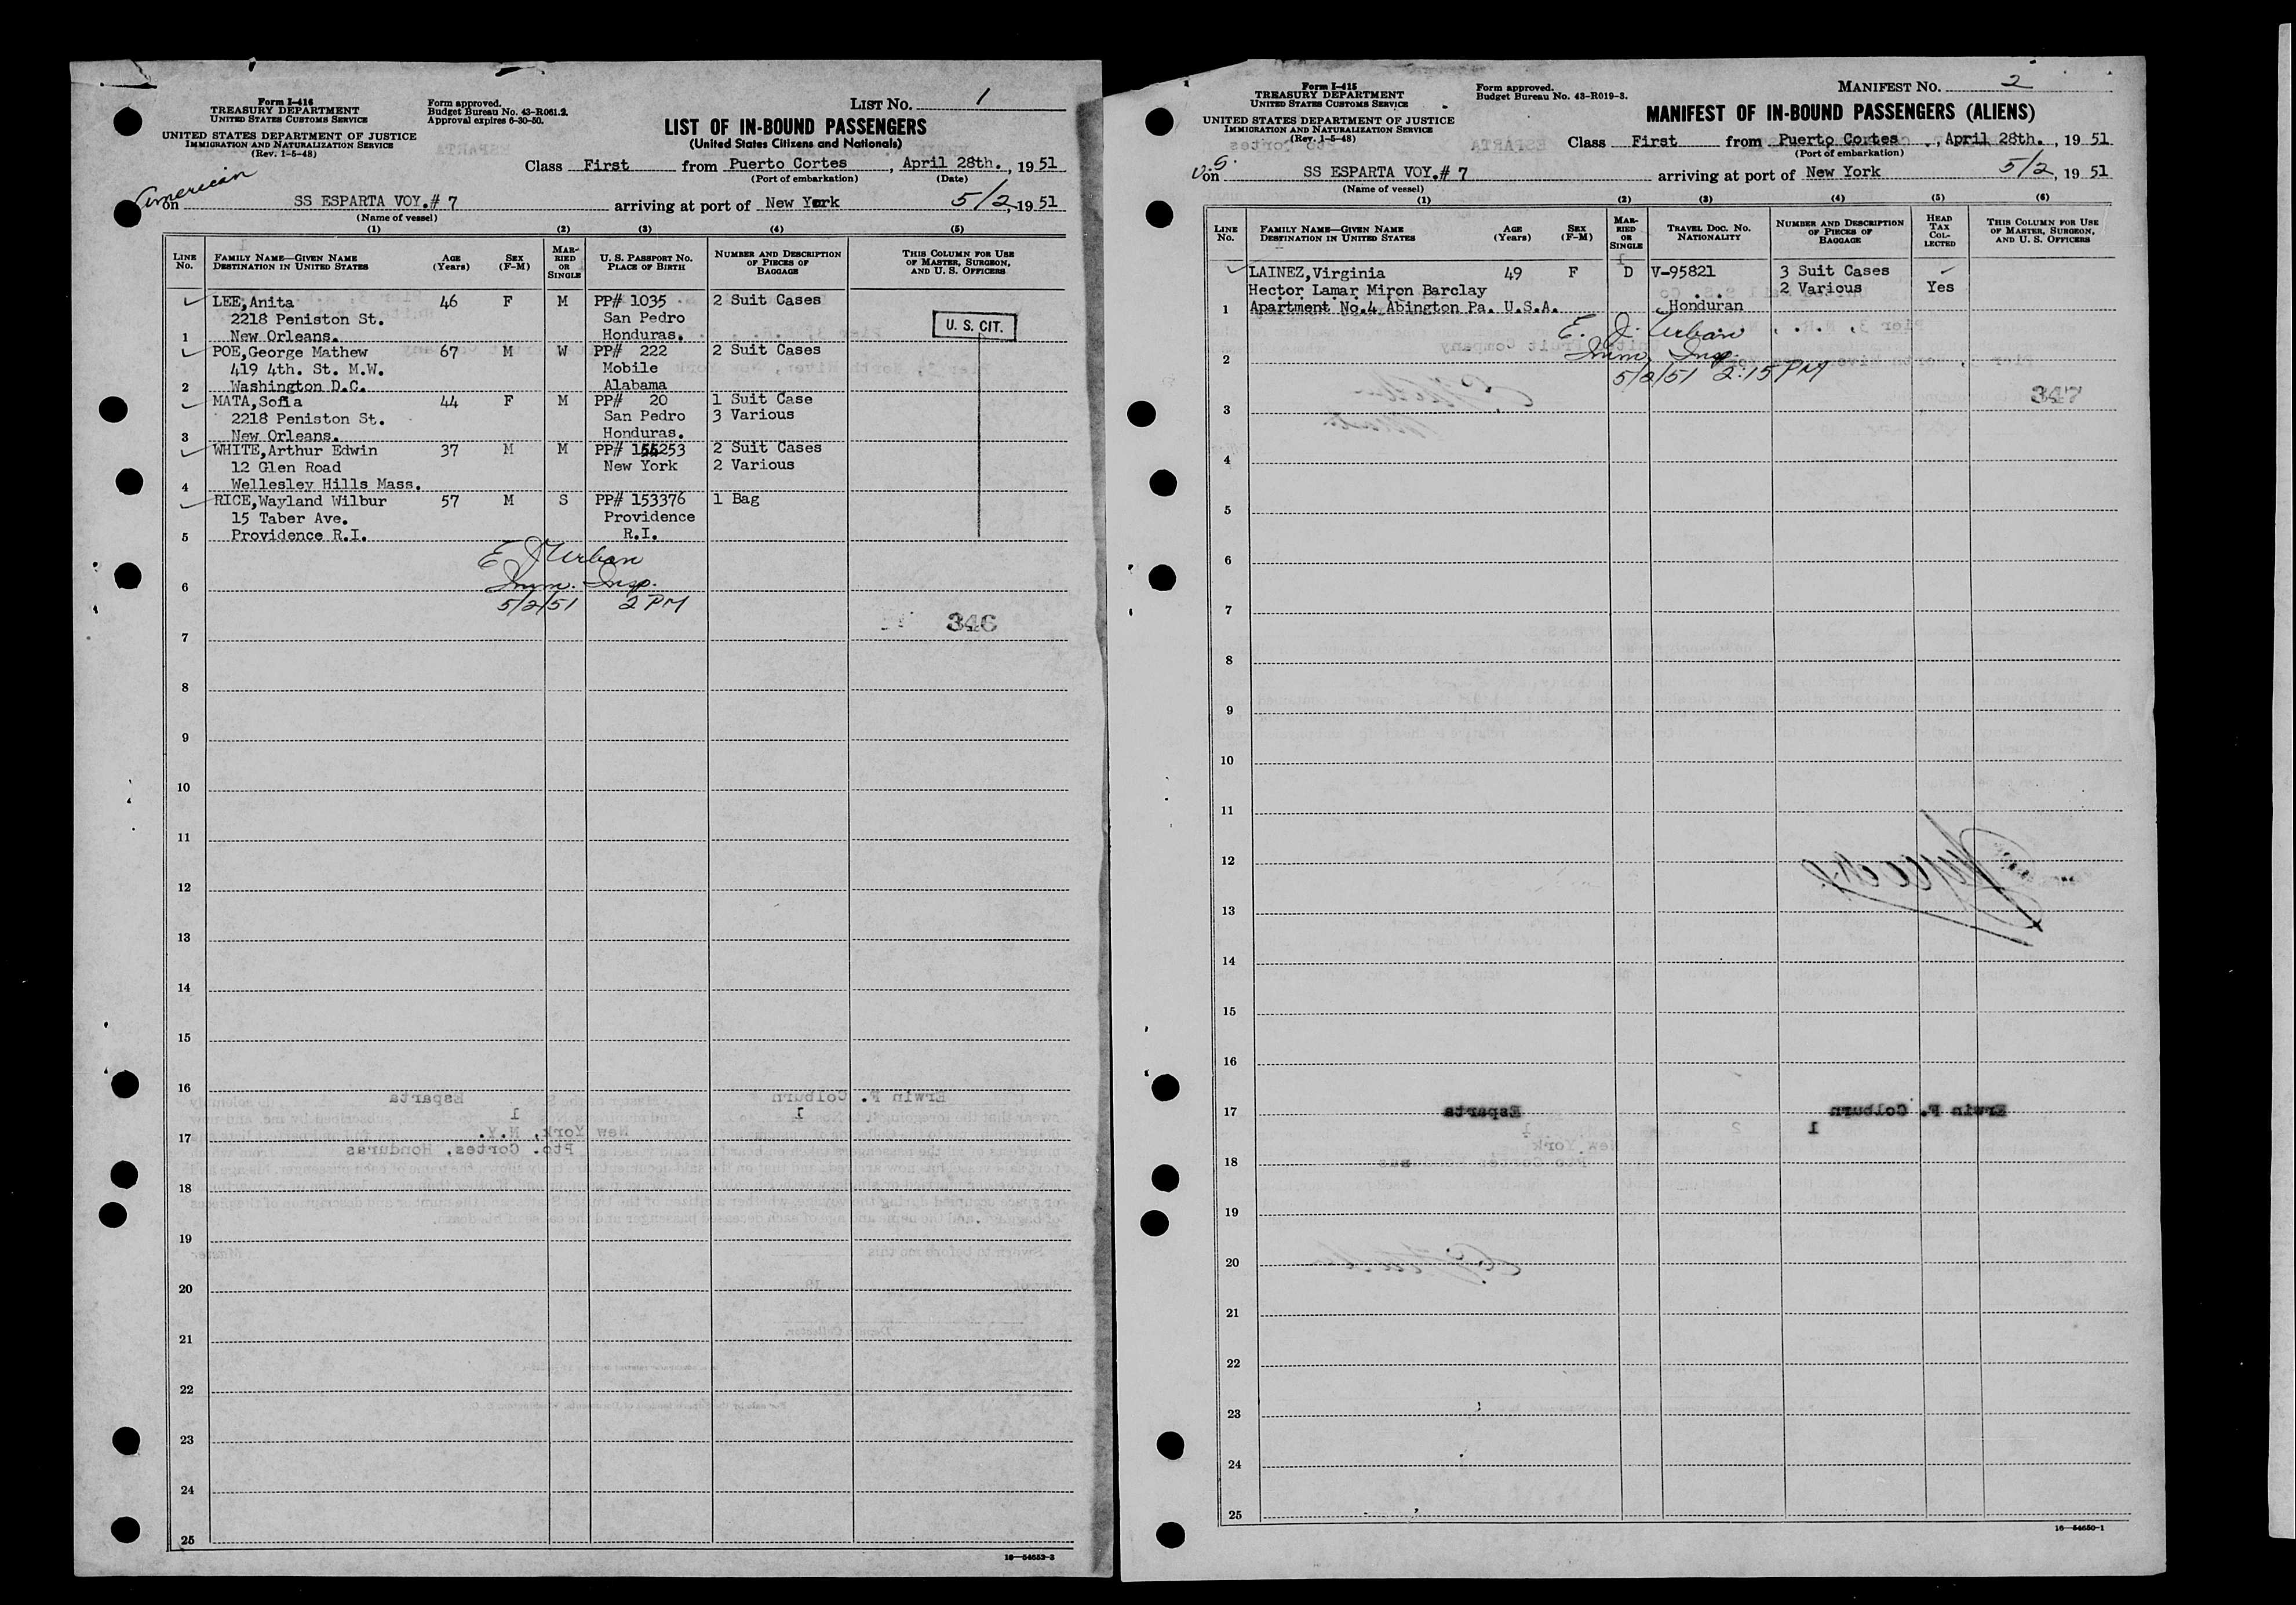 Form I-416
TREASURY DEPARTMENT
UNITED STATES CUSTOMS SERVICE
UNITED STATES DEPARTMENT OF JUSTICE
IMMIGRATION AND NATURALIZATION SERVICE
(Rev. 1-5-48)
Form approved.
Budget Bureau No. 43-R061.2.
Approval expires 6-30-50.
LIST NO. 1
LIST OF IN-BOUND PASSENGERS
(United States Citizens and Nationals)
Class First from Puerto Cortes, April 28th., 1951
(Port of embarkation) (Date)
American
on SS ESPARTA VOY.# 7 arriving at port of New York 5/2, 1951
(Name of vessel)
(1) (2) (3) (4) (5)
LINE No. FAMILY NAME—GIVEN NAME DESTINATION IN UNITED STATES AGE (Years) SEX (F-M) MARRIED OR SINGLE U. S. PASSPORT NO. PLACE OF BIRTH NUMBER AND DESCRIPTION OF PIECES OF BAGGAGE THIS COLUMN FOR USE OF MASTER, SURGEON, AND U. S. OFFICERS
LEE,Anita 46 F M PP# 1035 2 Suit Cases
2218 Peniston St. San Pedro
1 New Orleans. Honduras. U. S. CIT.
POE,George Mathew 67 M W PP# 222 2 Suit Cases
419 4th. St. M.W. Mobile
2 Washington D.C. Alabama
MATA,Sofia 44 F M PP# 20 1 Suit Case
2218 Peniston St. San Pedro 3 Various
3 New Orleans. Honduras.
WHITE,Arthur Edwin 37 M M PP# 155253 2 Suit Cases
12 Glen Road New York 2 Various
4 Wellesley Hills Mass.
RICE,Wayland Wilbur 57 M S PP# 153376 1 Bag
15 Taber Ave. Providence
5 Providence R.I. R.I.
E J Urban
6 Imm. Insp.
5/2/51 2 PM
346
7
8
9
10
11
12
13
14
15
16
Esparta Erwin F. Colburn
1 1
17 New York, N.Y.
Pto. Cortes, Honduras
18
19
20
21
22
23
24
25
16—54652-3
Form I-415
TREASURY DEPARTMENT
UNITED STATES CUSTOMS SERVICE
UNITED STATES DEPARTMENT OF JUSTICE
IMMIGRATION AND NATURALIZATION SERVICE
(Rev. 1-5-48)
Form approved.
Budget Bureau No. 43-R019-3.
MANIFEST NO. 2
MANIFEST OF IN-BOUND PASSENGERS (ALIENS)
Class First from Puerto Cortes, April 28th., 1951
(Port of embarkation)
U.S.
on SS ESPARTA VOY.# 7 arriving at port of New York 5/2, 1951
(Name of vessel)
(1) (2) (3) (4) (5) (6)
LINE No. FAMILY NAME—GIVEN NAME DESTINATION IN UNITED STATES AGE (Years) SEX (F-M) MARRIED OR SINGLE TRAVEL DOC. NO. NATIONALITY NUMBER AND DESCRIPTION OF PIECES OF BAGGAGE HEAD TAX COLLECTED THIS COLUMN FOR USE OF MASTER, SURGEON, AND U. S. OFFICERS
LAINEZ,Virginia 49 F D V-95821 3 Suit Cases
Hector Lamar Miron Barclay 2 Various Yes
1 Apartment No.4 Abington Pa. U.S.A. Honduran
E. J. Urban
2 Imm. Insp.
5/2/51 2:15 PM
347
3
4
5
6
7
8
9
10
11
12
13
14
15
16
17 Esparta Erwin F. Colburn
2 1 1
New York
18
19
20
21
22
23
24
25
16—54650-1